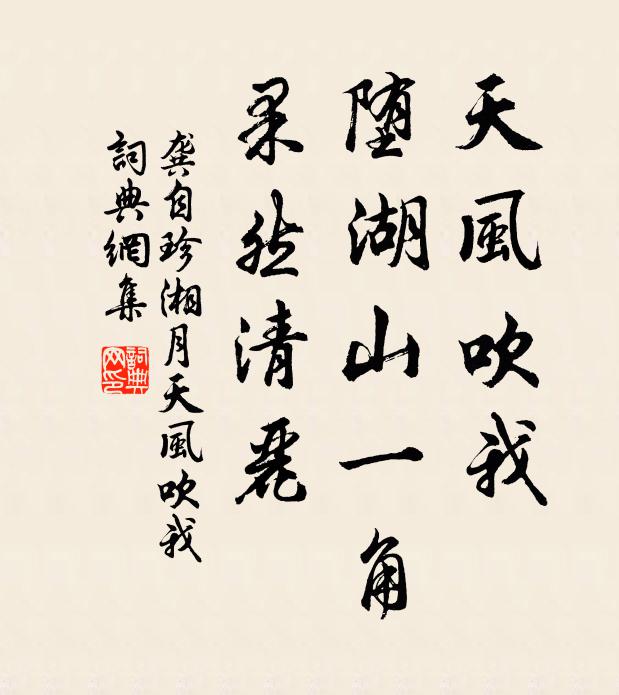 天風吹我
堕湖山一角
果然清麗
龔自珍湘月天風吹我
詞典網集
詞典網印